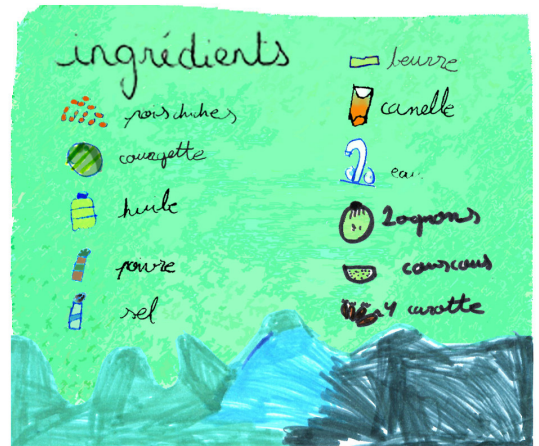 ingrédients
pois chiches
courgette
huile
poivre
sel
beurre
canelle
eau
2 ognons
couscous
4 carotte